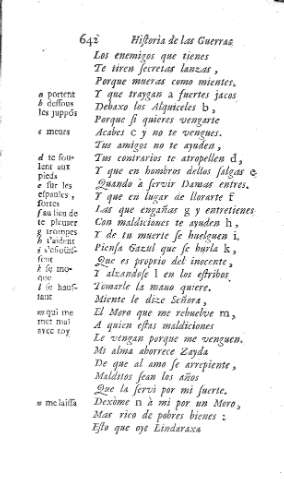 642 Historia de las Guerras
Los enemigos que tienes
Te tiren secretas lanzas,
Porque mueras como mientes.
a portent Y que traygan a fuertes jacos
b dessous Debaxo los Alquiceles b,
les juppós
Porque si quieres vengarte
c meurs Acabes c y no te vengues.
Tus amigos no te ayuden,
d te fou- Tus contrarios te atropellen d,
lent aux Y que en hombros dellos salgas e
pieds
e sur les Quando à servir Damas entres.
espaules,
fortes Y que en lugar de llorarte f
f au lieu de Las que engañas g y entretienes
te pleurer Con maldiciones te ayuden h,
g trompes
h s'aident Y de tu muerte se huelguen i.
Piensa Gazul que se burla k,
sent Que es proprio del inocente,
k se mo-
que Y alzandose l en los estribos
l se hauf- Tomarle la mano quiere.
sant
Miente le dize Señora,
m qui me El Moro que me rebuelve m,
met mal A quien estas maldiciones
avec toy
Le vengan porque me venguen.
Mi alma aborrece Zayda
De que al amo se arrepiente,
Malditos sean los años
Que la servi por mi suerte.
n me laissa Dexòme n à mi por un Moro,
Mas rico de pobres bienes:
Esto que oye Lindaraxa